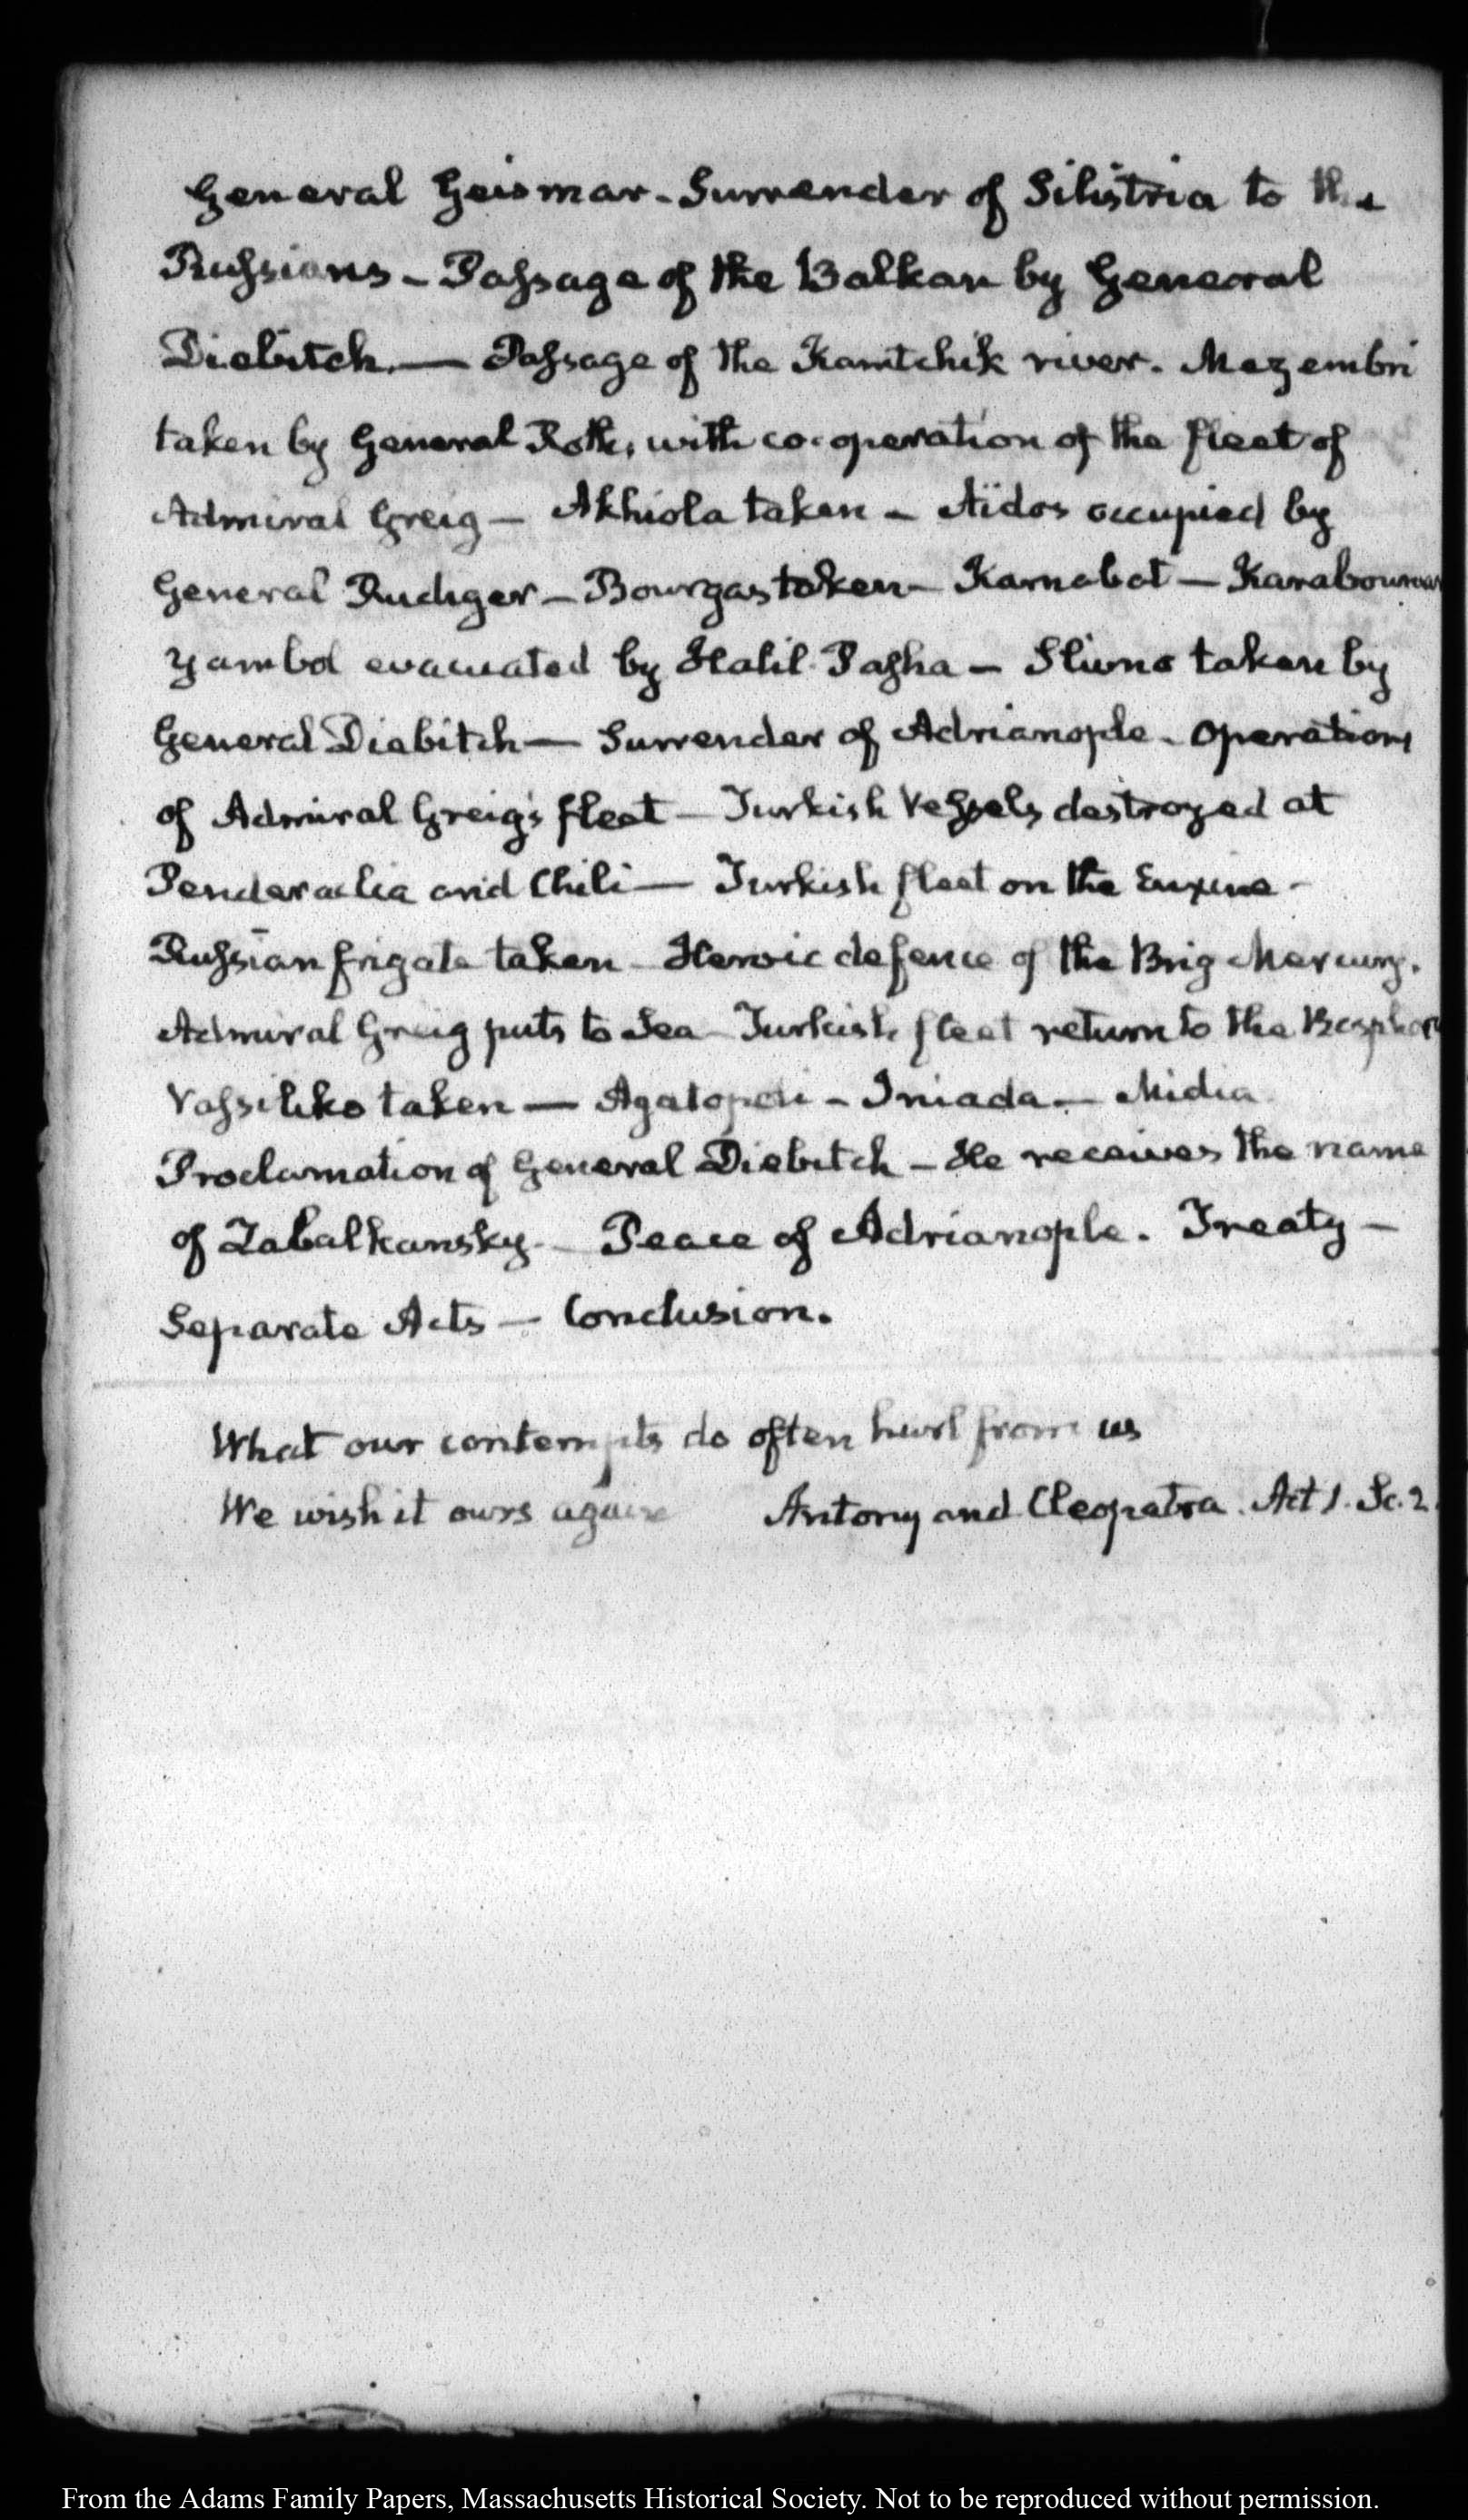 General Geismar - Surrender of Silistria to the
Russians - Passage of the Balkan by General
Diebitch. — Passage of the Kamtchik river. Mezembri
taken by General Roth, with co-operation of the fleet of
Admiral Greig — Akhiola taken — Aïdos occupied by
General Rudiger — Bourgas taken — Karnabat — Karabounar
Yambol evacuated by Halil Pasha — Slivno taken by
General Diebitch — Surrender of Adrianople - Operations
of Admiral Greig's fleet — Turkish Vessels destroyed at
Penderaclia and Chili — Turkish fleet on the Euxine -
Russian frigate taken - Heroic defence of the Brig Mercury.
Admiral Greig puts to Sea - Turkish fleet return to the Bosphorus
Vassiliko taken — Agatopoli - Iniada — Midia
Proclamation of General Diebitch - He receives the name
of Zabalkansky - Peace of Adrianople. Treaty —
Separate Acts — Conclusion.
What our contempts do often hurl from us
We wish it ours again Antony and Cleopatra. Act 1. Sc. 2.
From the Adams Family Papers, Massachusetts Historical Society. Not to be reproduced without permission.